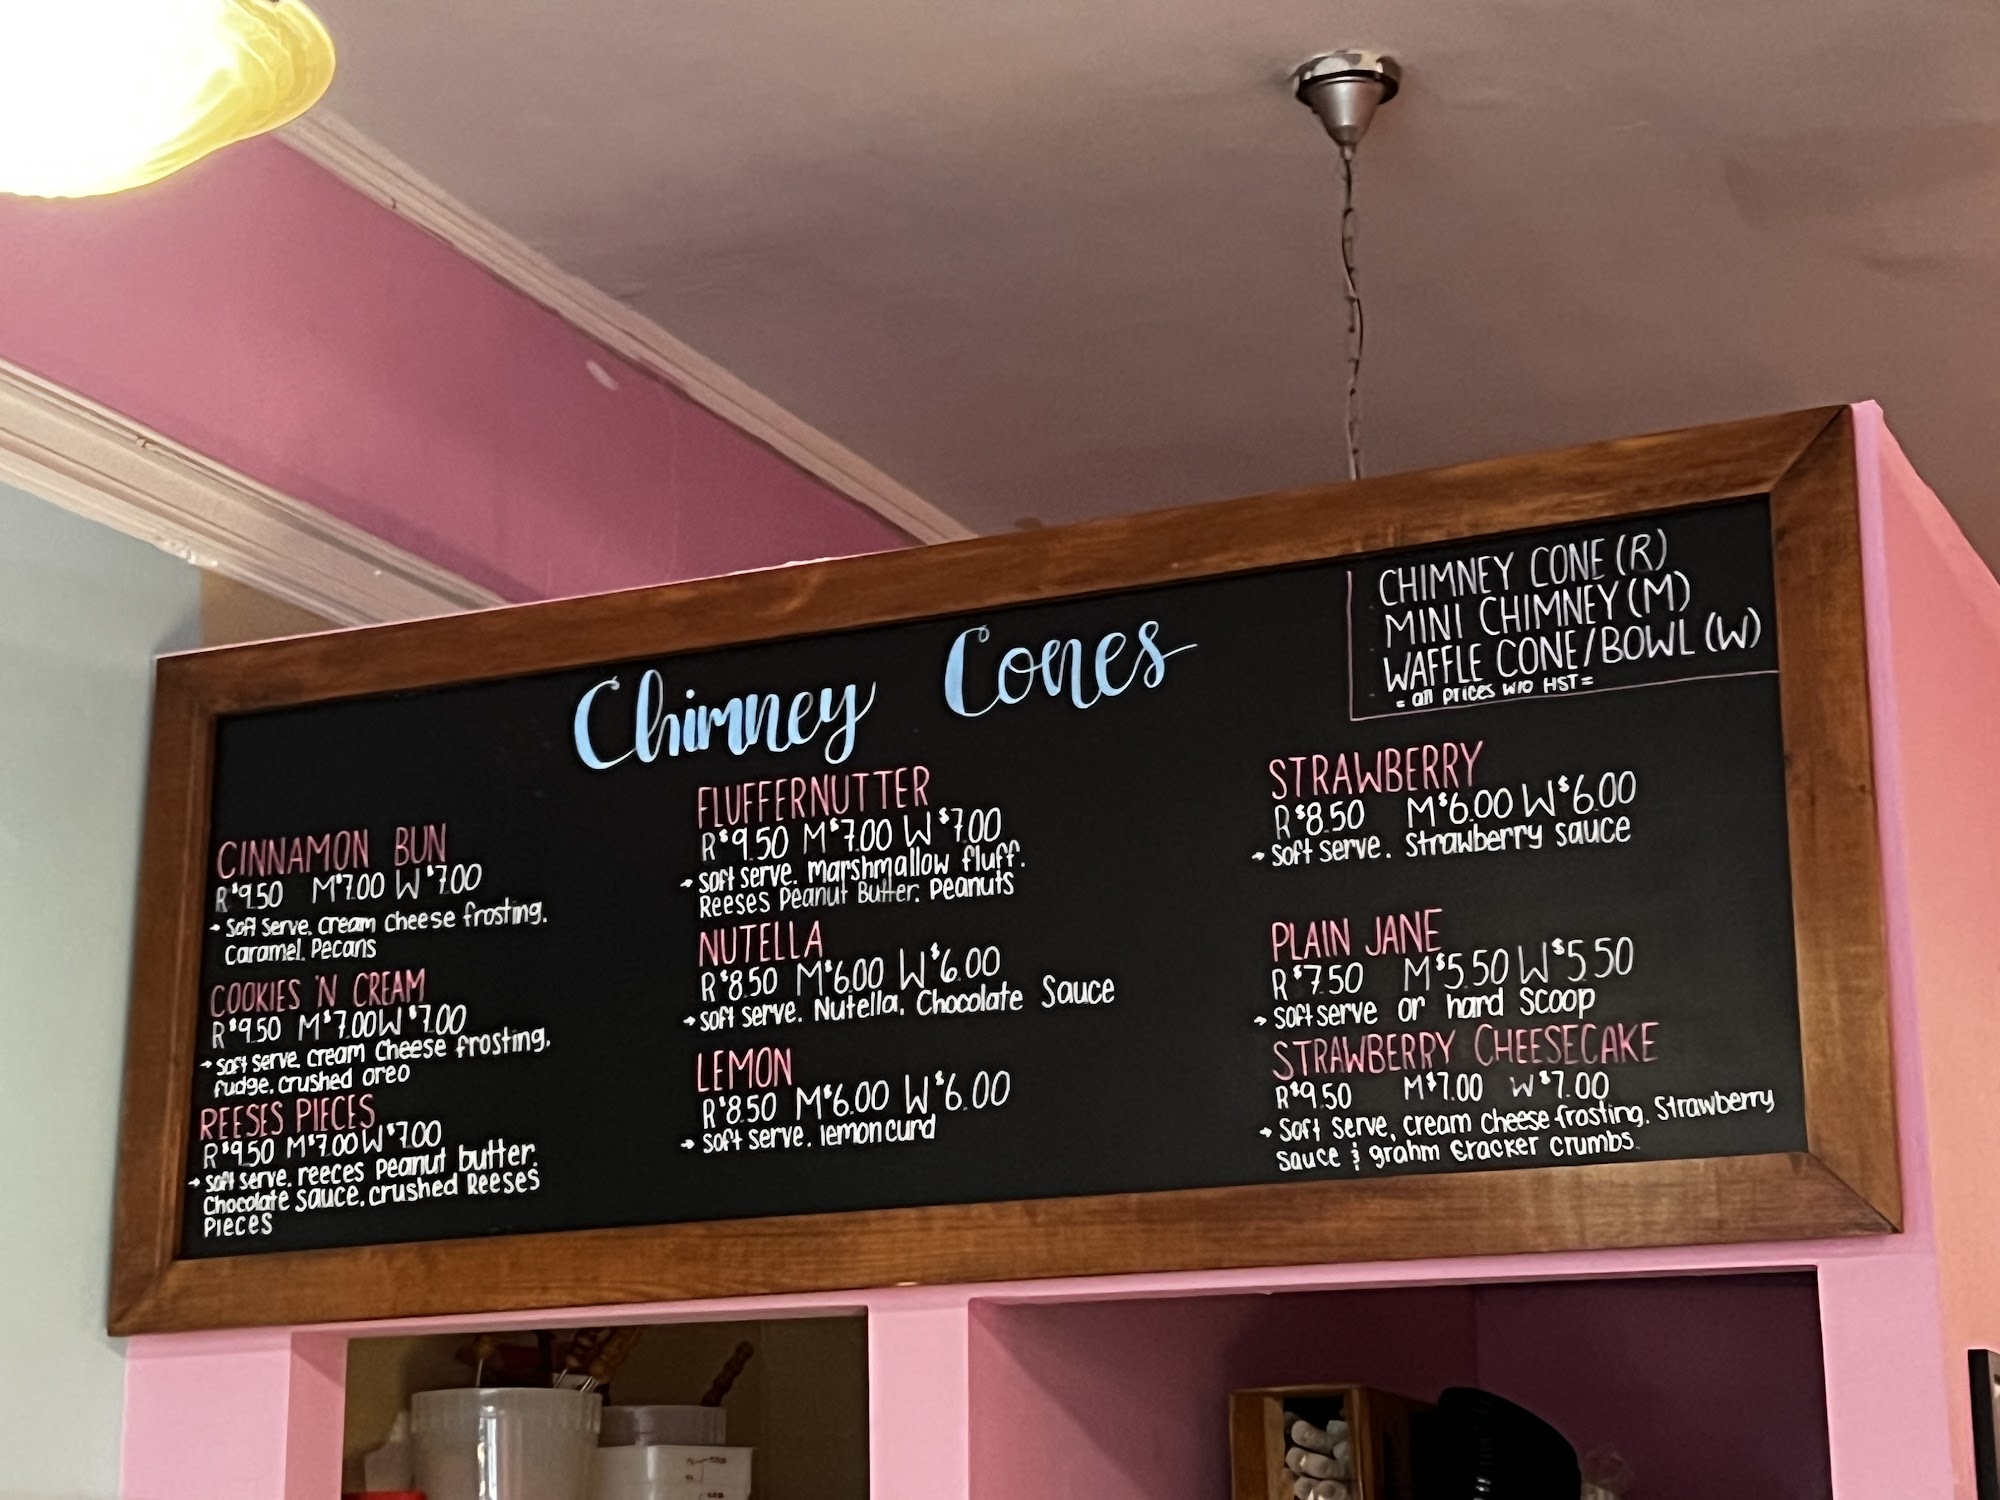 Chimney Cones
CHIMNEY CONE (R)
MINI CHIMNEY (M)
WAFFLE CONE/BOWL (W)
= all prices w/o HST =
CINNAMON BUN
R $9.50 M $7.00 W $7.00
→ Soft Serve, cream cheese frosting,
Caramel, Pecans
COOKIES 'N CREAM
R $9.50 M $7.00 W $7.00
→ soft serve, cream cheese frosting,
fudge, crushed oreo
REESES PIECES
R $9.50 M $7.00 W $7.00
→ soft serve, reeces peanut butter,
Chocolate sauce, crushed Reeses
Pieces
FLUFFERNUTTER
R $9.50 M $7.00 W $7.00
→ soft serve, marshmallow fluff,
Reeses Peanut Butter, Peanuts
NUTELLA
R $8.50 M $6.00 W $6.00
→ soft serve, Nutella, Chocolate Sauce
LEMON
R $8.50 M $6.00 W $6.00
→ soft serve, lemon curd
STRAWBERRY
R $8.50 M $6.00 W $6.00
→ soft serve, strawberry sauce
PLAIN JANE
R $7.50 M $5.50 W $5.50
→ soft serve or hard scoop
STRAWBERRY CHEESECAKE
R $9.50 M $7.00 W $7.00
→ Soft Serve, cream cheese frosting, Strawberry
Sauce & grahm cracker crumbs.